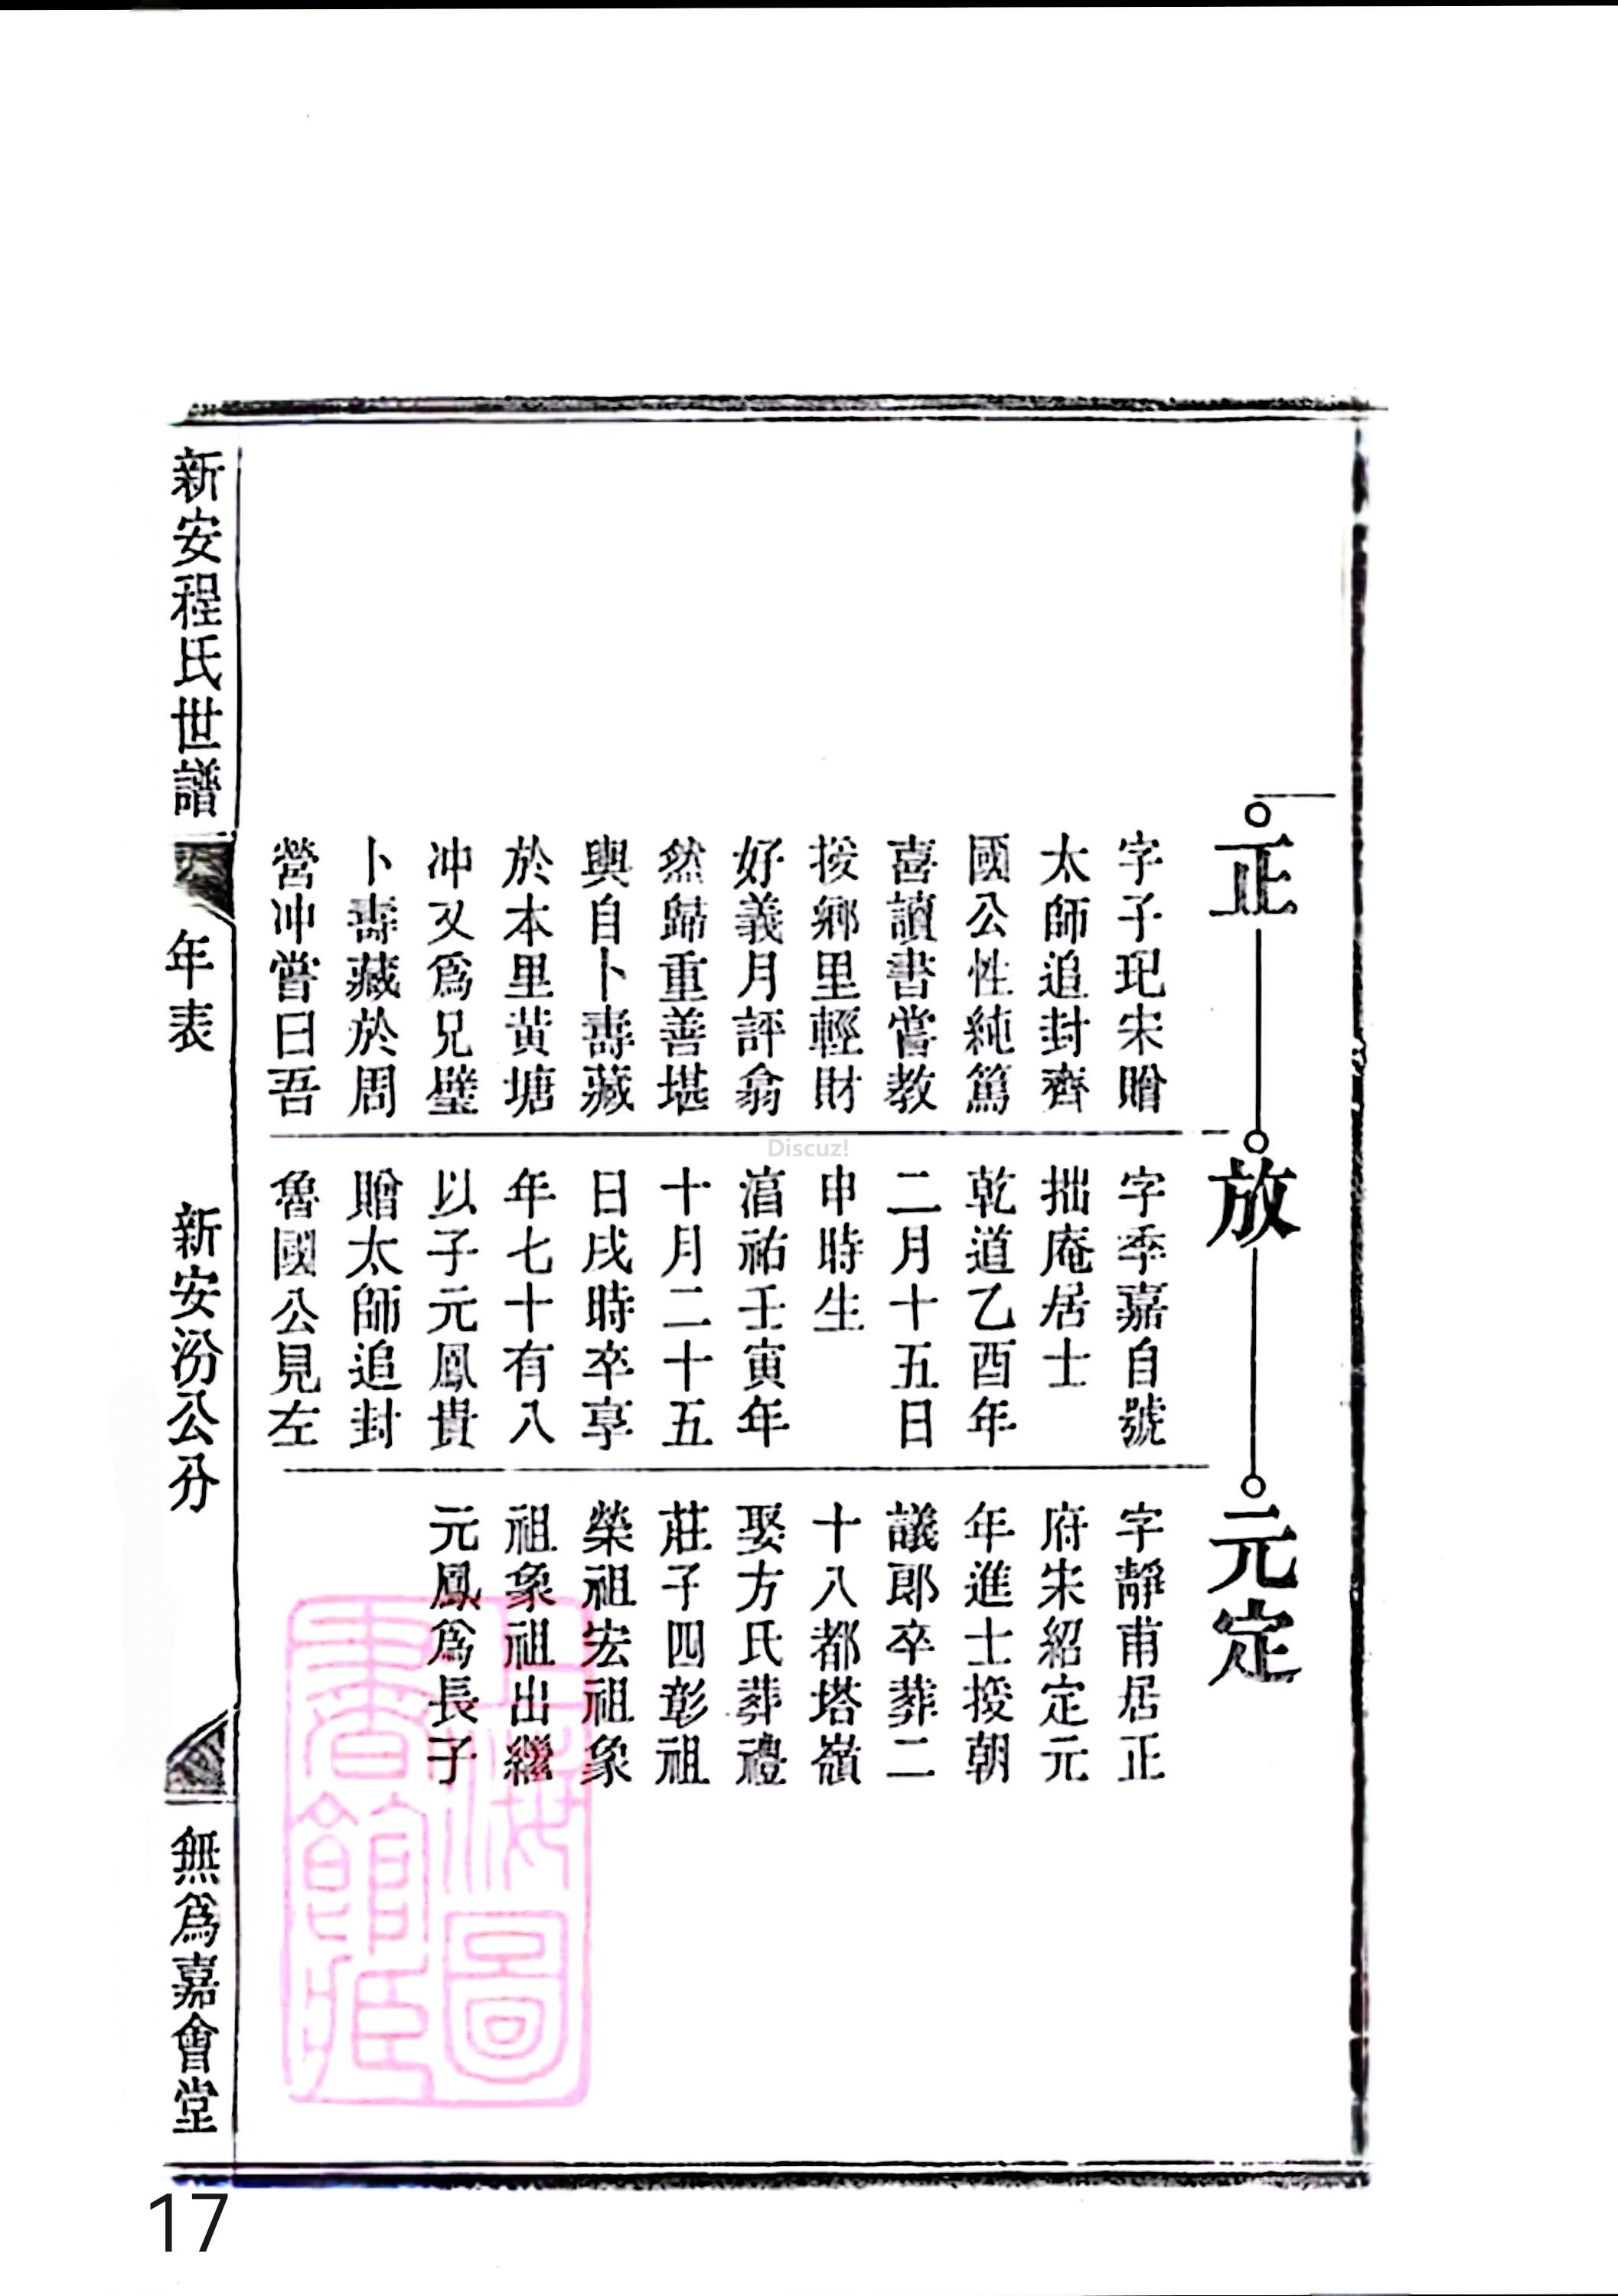 正
字子玘宋贈
太師追封齊
國公性純篤
喜讀書嘗教
授鄉里輕財
好義月評翕
然歸重善堪
輿自卜壽藏
於本里黃塘
冲又爲兄璧
卜壽藏於周
營冲嘗曰吾
放
字季嘉自號
拙庵居士
乾道乙酉年
二月十五日
申時生
淳祐壬寅年
十月二十五
日戌時卒享
年七十有八
以子元鳳貴
贈太師追封
魯國公見左
元定
字靜甫居正
府宋紹定元
年進士授朝
議郎卒葬二
十八都塔嶺
娶方氏葬禮
莊子四彰祖
榮祖宏祖象
祖象祖出繼
元鳳爲長子
新安程氏世譜
年表
新安汾公分
無爲嘉會堂
上海圖
書館藏
Discuz!
17